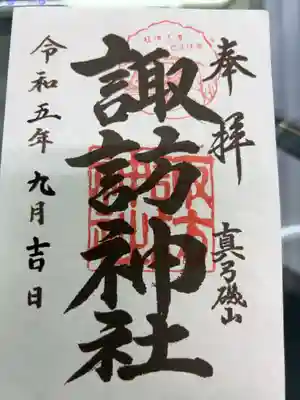 奉拝
真弓磯山
諏訪神社
令和五年九月吉日